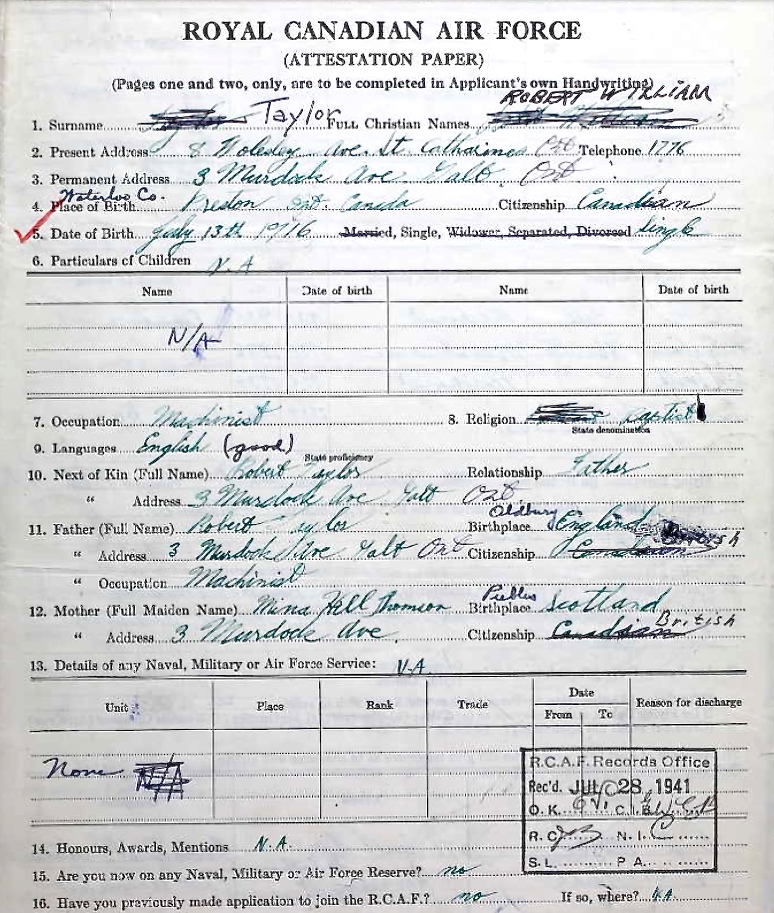 ROYAL CANADIAN AIR FORCE
(ATTESTATION PAPER)
(Pages one and two, only, are to be completed in Applicant's own Handwriting)
ROBERT WILLIAM
1. Surname Taylor FULL Christian Names
2. Present Address 8 Wolesley Ave. St. Catharines Ont Telephone 1776
3. Permanent Address 3 Murdock Ave Galt Ont
Waterloo Co.
4. Place of Birth Preston Ont. Canada Citizenship Canadian
5. Date of Birth July 13th 1916 Married, Single, Widower, Separated, Divorced Single
6. Particulars of Children N.A
Name Date of birth Name Date of birth
N/A
7. Occupation Machinist 8. Religion Baptist
State denomination
9. Languages English (good)
State proficiency
10. Next of Kin (Full Name) Robert Taylor Relationship Father
" Address 3 Murdock Ave Galt Ont
Oldbury
11. Father (Full Name) Robert Taylor Birthplace England
British
" Address 3 Murdock Ave Galt Ont Citizenship Canadian
" Occupation Machinist
Peebles
12. Mother (Full Maiden Name) Mina Hill Thomson Birthplace Scotland
British
" Address 3 Murdock Ave Citizenship Canadian
13. Details of any Naval, Military or Air Force Service: N.A.
Unit Place Rank Trade Date From To Reason for discharge
None N/A
R.C.A.F. Records Office
Rec'd. JUL 28 1941
O.K. C.I.B.
R.C. N.I.
S.L. P.A.
14. Honours, Awards, Mentions N.A.
15. Are you now on any Naval, Military or Air Force Reserve? no
16. Have you previously made application to join the R.C.A.F.? no If so, where? N.A